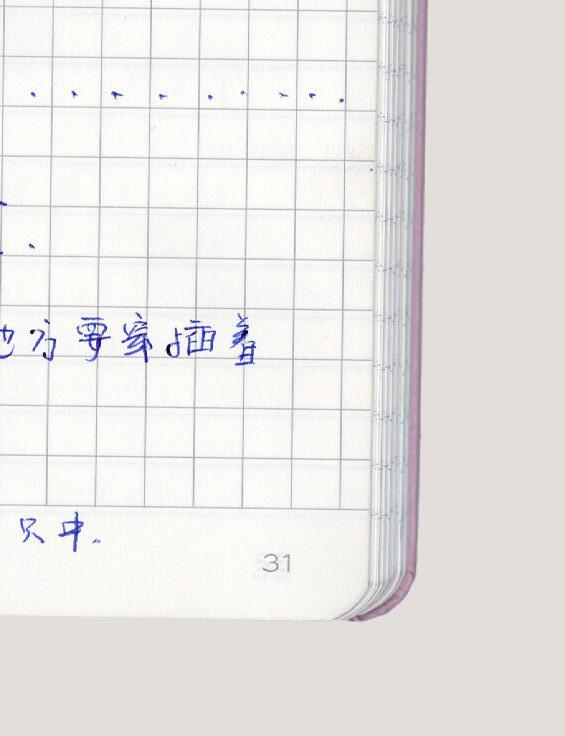 . . . . . . . . .
.
方要穿插着
只中.
31